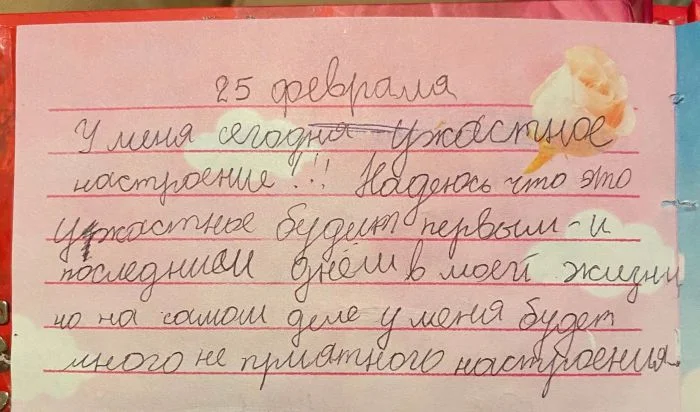 25 февраля
У меня сегодня ужастное
настроение!!! Надеюсь что это
ужастное будет первым-и
последнием днём в моей жизни
но на самом деле у меня будет
много не приятного настроения.